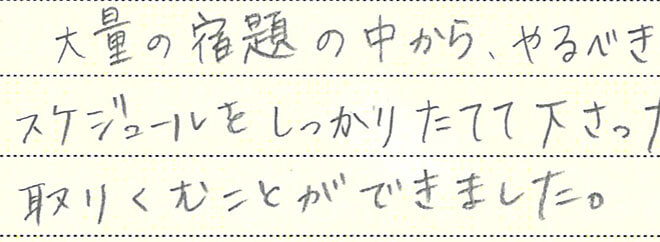 大量の宿題の中から、やるべき
スケジュールをしっかりたてて下さった
取りくむことができました。